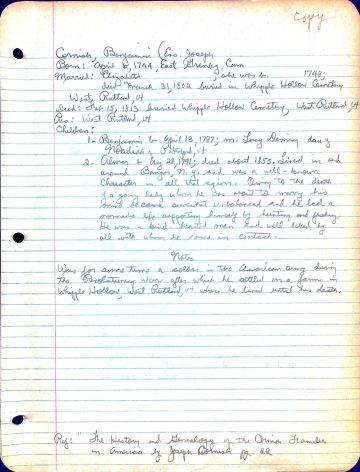 Copy
Cornish, Benjamin (Ens. Joseph
Born: April 8, 1744, East Granby, Conn
Married: Elizabeth , she was b. 1748;
died March 31, 1802 buried in Whipple Hollow Cemetery
West, Rutland, Vt
Died: Feb 15, 1813 buried Whipple Hollow Cemetery, West Rutland, Vt
Res: West Rutland, Vt
Children:
1- Benjamin b. April 13, 1787; m. Lucy Deming dau of
Noadiah of Rutland, Vt
2- Abner b. Aug 28, 1791; died about 1855. Lived in and
around Bangor, N.Y. and was a well-known
character in all that region. Owing to the death
of a young lady whom he was next to marry his
mind became somewhat unbalanced and he led a
nomadic life supporting himself by hunting and fishing.
He was a kind-hearted man and well liked by
all with whom he came in contact.
Notes
Was for some time a soldier in the American army during
the Revolutionary War after which he settled on a farm in
Whipple Hollow, West Rutland, Vt where he lived until his death.
Ref: "The History and Genealogy of the Cornish Families
in America by Joseph Cornish pg 22